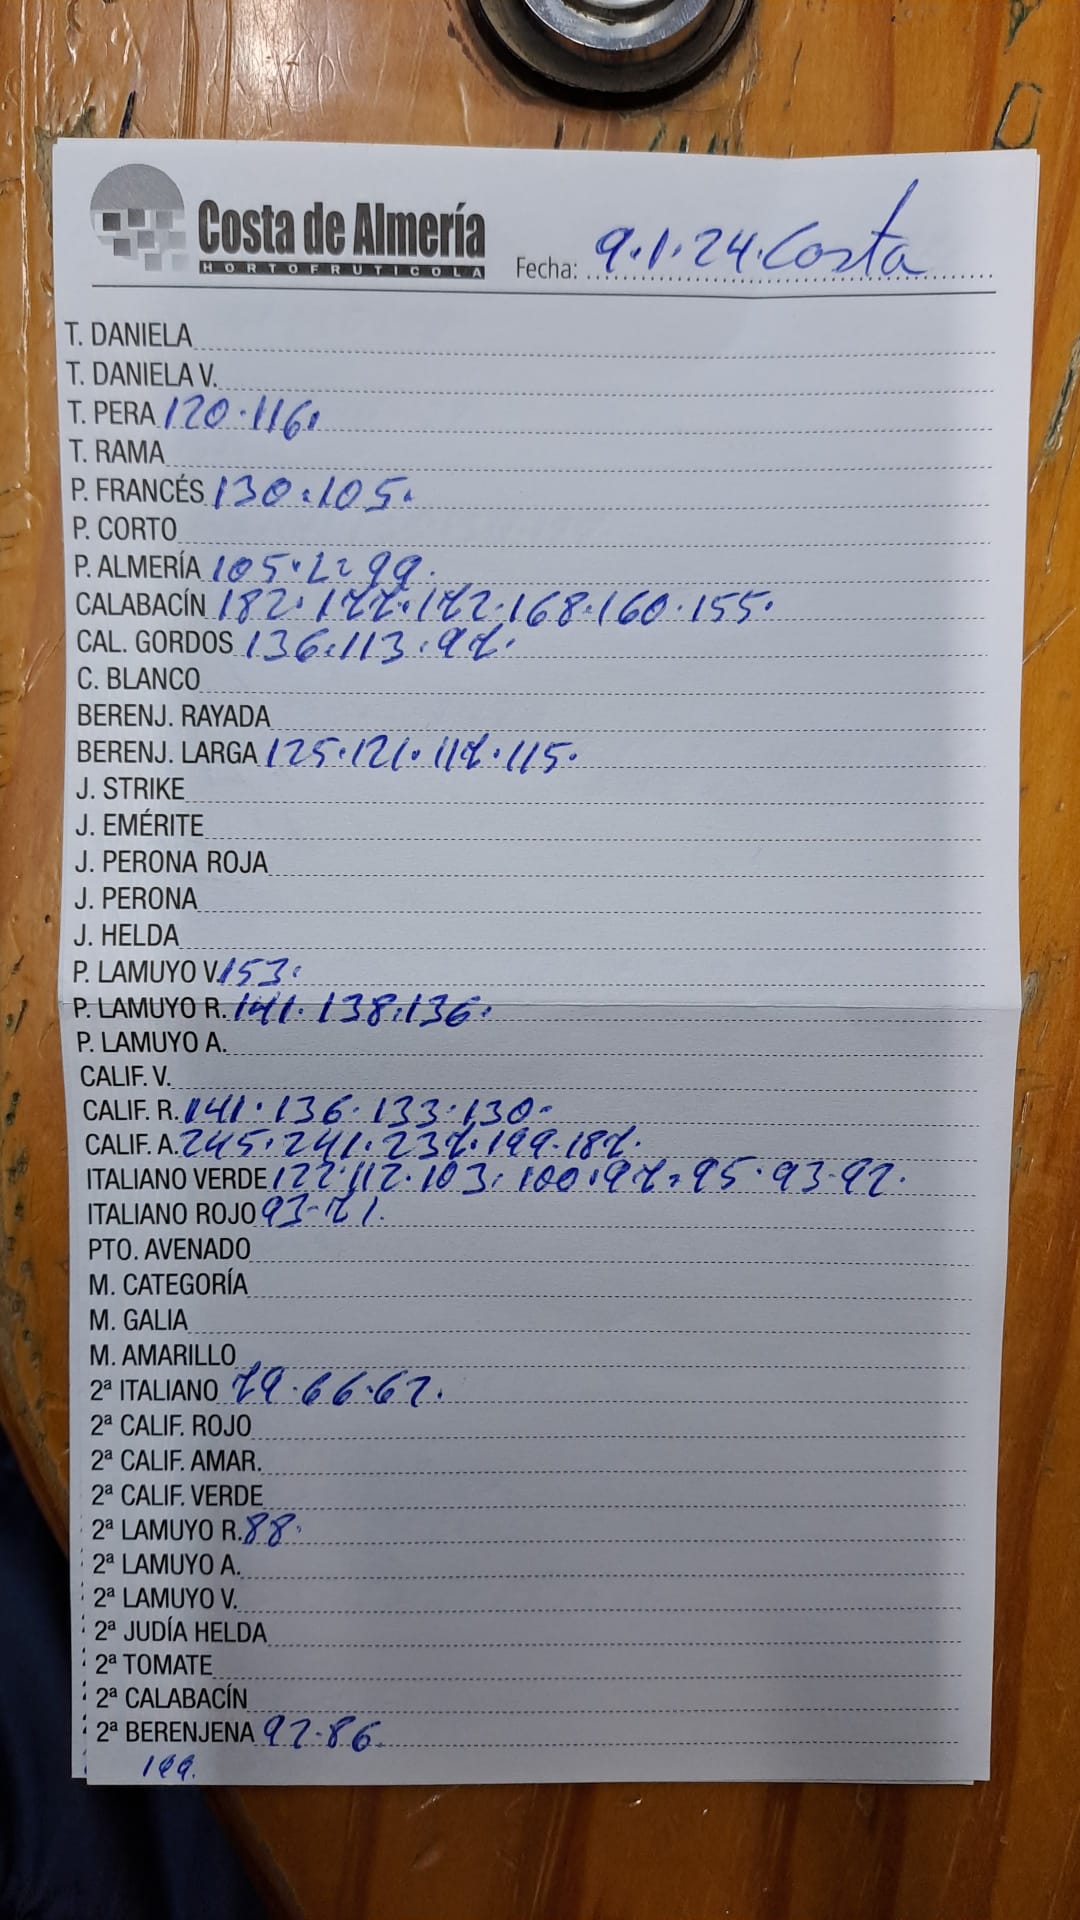 Costa de Almería
HORTOFRUTICOLA
Fecha: 9.1.24. Costa
T. DANIELA
T. DANIELA V.
T. PERA 120.116.
T. RAMA
P. FRANCÉS 130.105.
P. CORTO
P. ALMERÍA 105. 99.
CALABACÍN 182.177.172.168.160.155.
CAL. GORDOS 136.113.97.
C. BLANCO
BERENJ. RAYADA
BERENJ. LARGA 125.121.117.115.
J. STRIKE
J. EMÉRITE
J. PERONA ROJA
J. PERONA
J. HELDA
P. LAMUYO V. 153.
P. LAMUYO R. 141.138.136.
P. LAMUYO A.
CALIF. V.
CALIF. R. 141.136.133.130.
CALIF. A. 245.241.237.199.187.
ITALIANO VERDE 122.112.103.100.97.95.93.92.
ITALIANO ROJO 93-71.
PTO. AVENADO
M. CATEGORÍA
M. GALIA
M. AMARILLO
2ª ITALIANO 79.66.62.
2ª CALIF. ROJO
2ª CALIF. AMAR.
2ª CALIF. VERDE
2ª LAMUYO R. 88.
2ª LAMUYO A.
2ª LAMUYO V.
2ª JUDÍA HELDA
2ª TOMATE
2ª CALABACÍN
2ª BERENJENA 92.86.